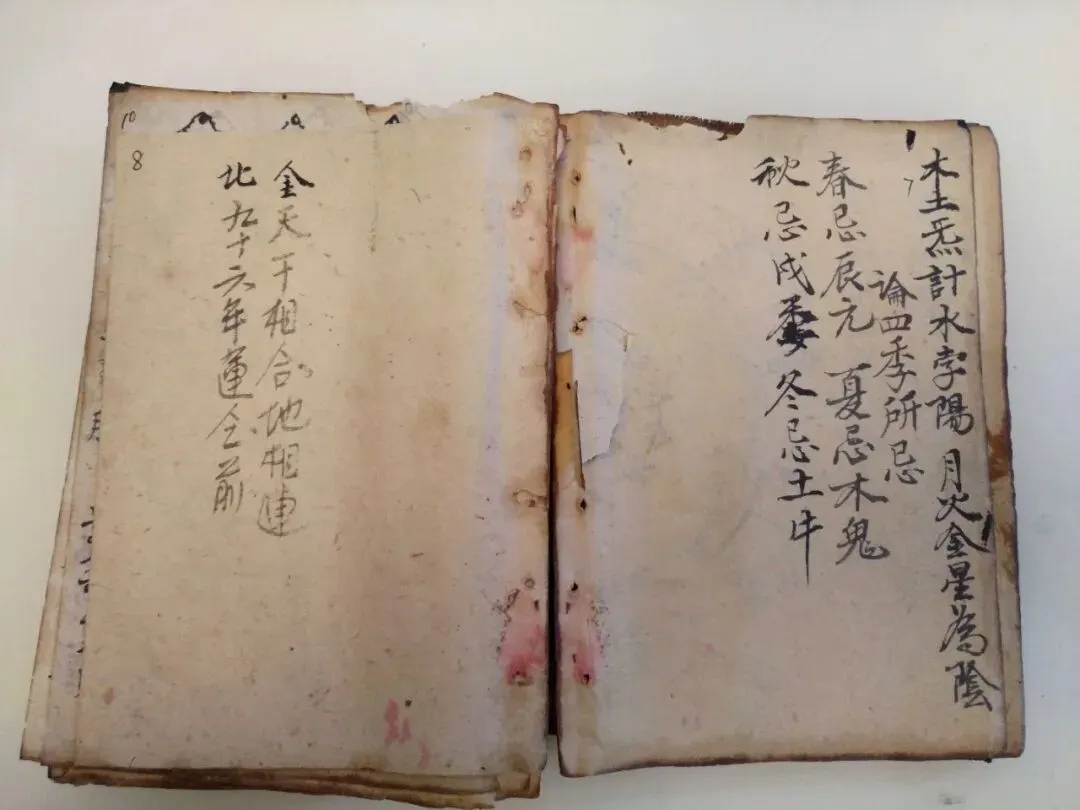 木土炁計水孛陽 月火金星為陰
論四季所忌
春忌辰元 夏忌木鬼
秋忌戌 冬忌土牛
10
8
金天干相合地相連
北九十六年運全前